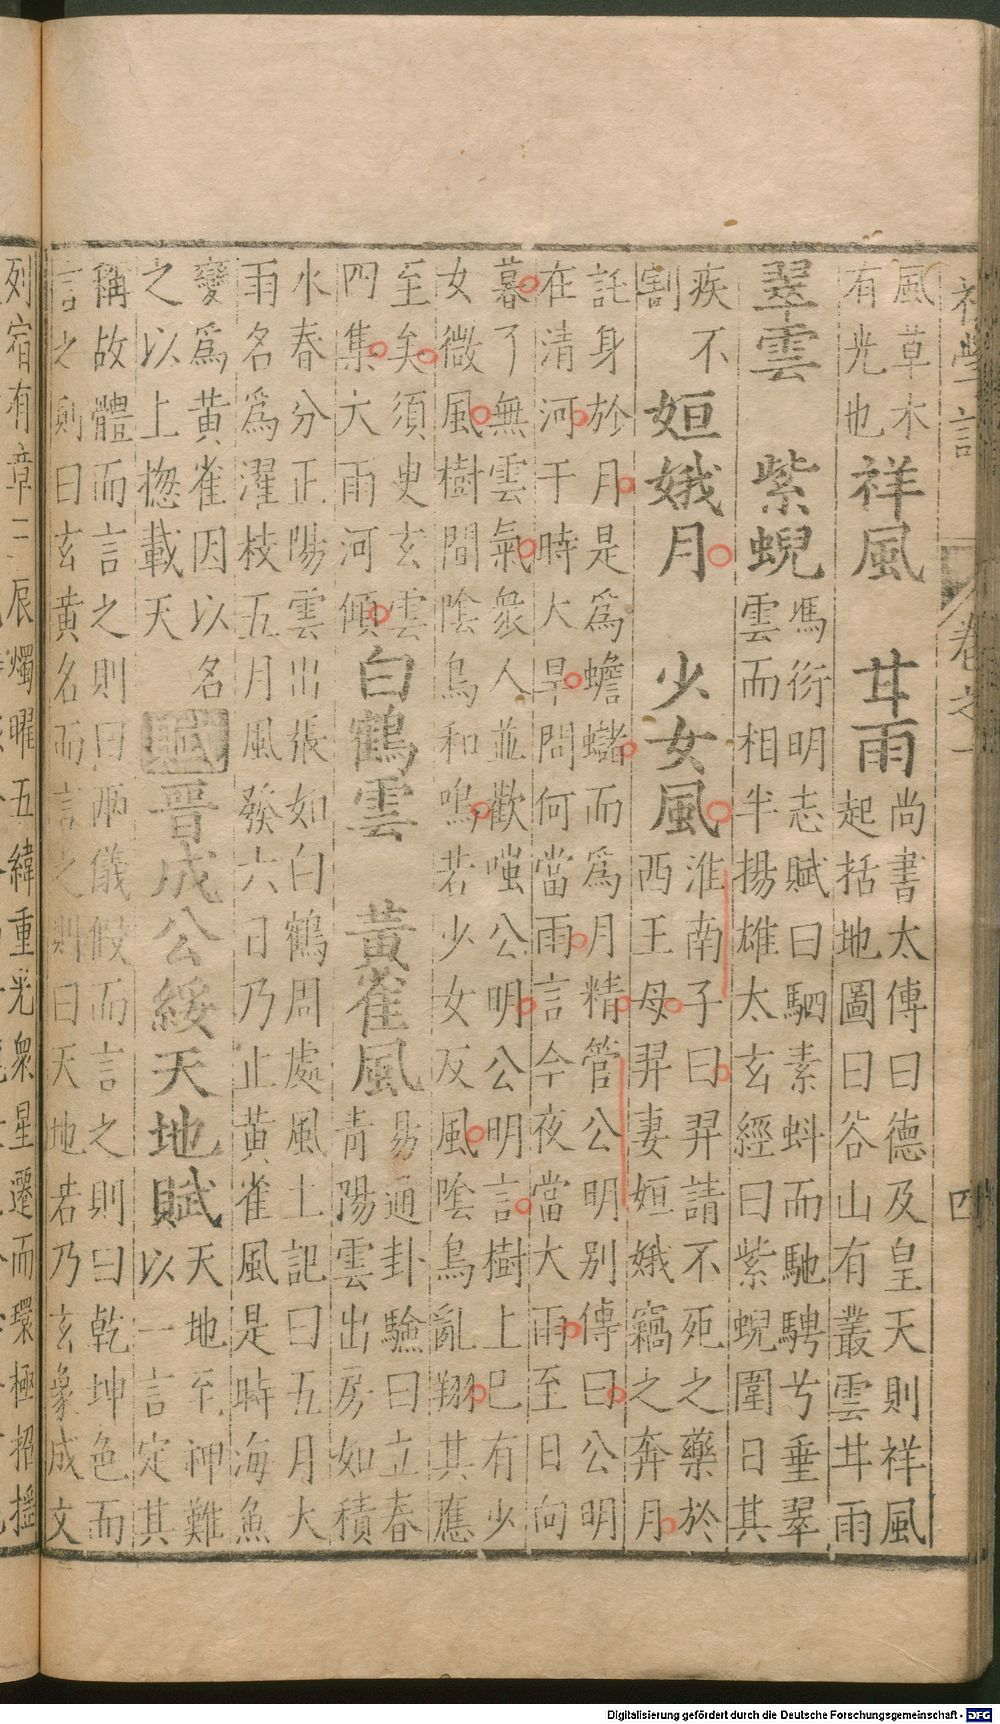 初學記 卷之一 四
風草木
有光也
祥風 甘雨
尚書太傳曰德及皇天則祥風
起括地圖曰谷山有叢雲甘雨
翠雲 紫蜺
馮衍明志賦曰駟素蚪而馳騁兮垂翠
雲而相半揚雄太玄經曰紫蜺圍日其
疾不
割
姮娥月 少女風
淮南子曰羿請不死之藥於
西王母羿妻姮娥竊之奔月
託身於月是爲蟾蠩而爲月精管公明別傳曰公明
在清河于時大旱問何當雨言今夜當大雨至日向
暮了無雲氣衆人並歡嗤公明公明言樹上巳有少
女微風樹間陰鳥和鳴若少女反風陰鳥亂翔其應
至矣須臾玄雲
四集大雨河傾
白鶴雲 黃雀風
易通卦驗曰立春
青陽雲出房如積
水春分正陽雲出張如白鶴周處風土記曰五月大
雨名爲濯枝五月風發六日乃止黃雀風是時海魚
變爲黃雀因以名
之以上揔載天
賦 晉成公綏天地賦
天地至神難
以一言定其
稱故體而言之則曰兩儀假而言之則曰乾坤色而
言之則曰玄黃名而言之則曰天地若乃玄象成文
列宿有章三辰燭曜五緯重光衆星遷而環極招搖
Digitalisierung gefördert durch die Deutsche Forschungsgemeinschaft - DFG